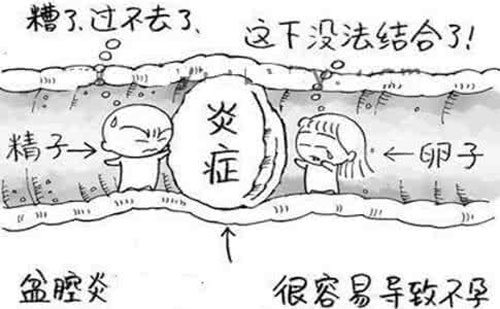 糟了,过不去了、
这下没法结合了!
精子→
炎症
←卵子
↑
盆腔炎
很容易导致不孕